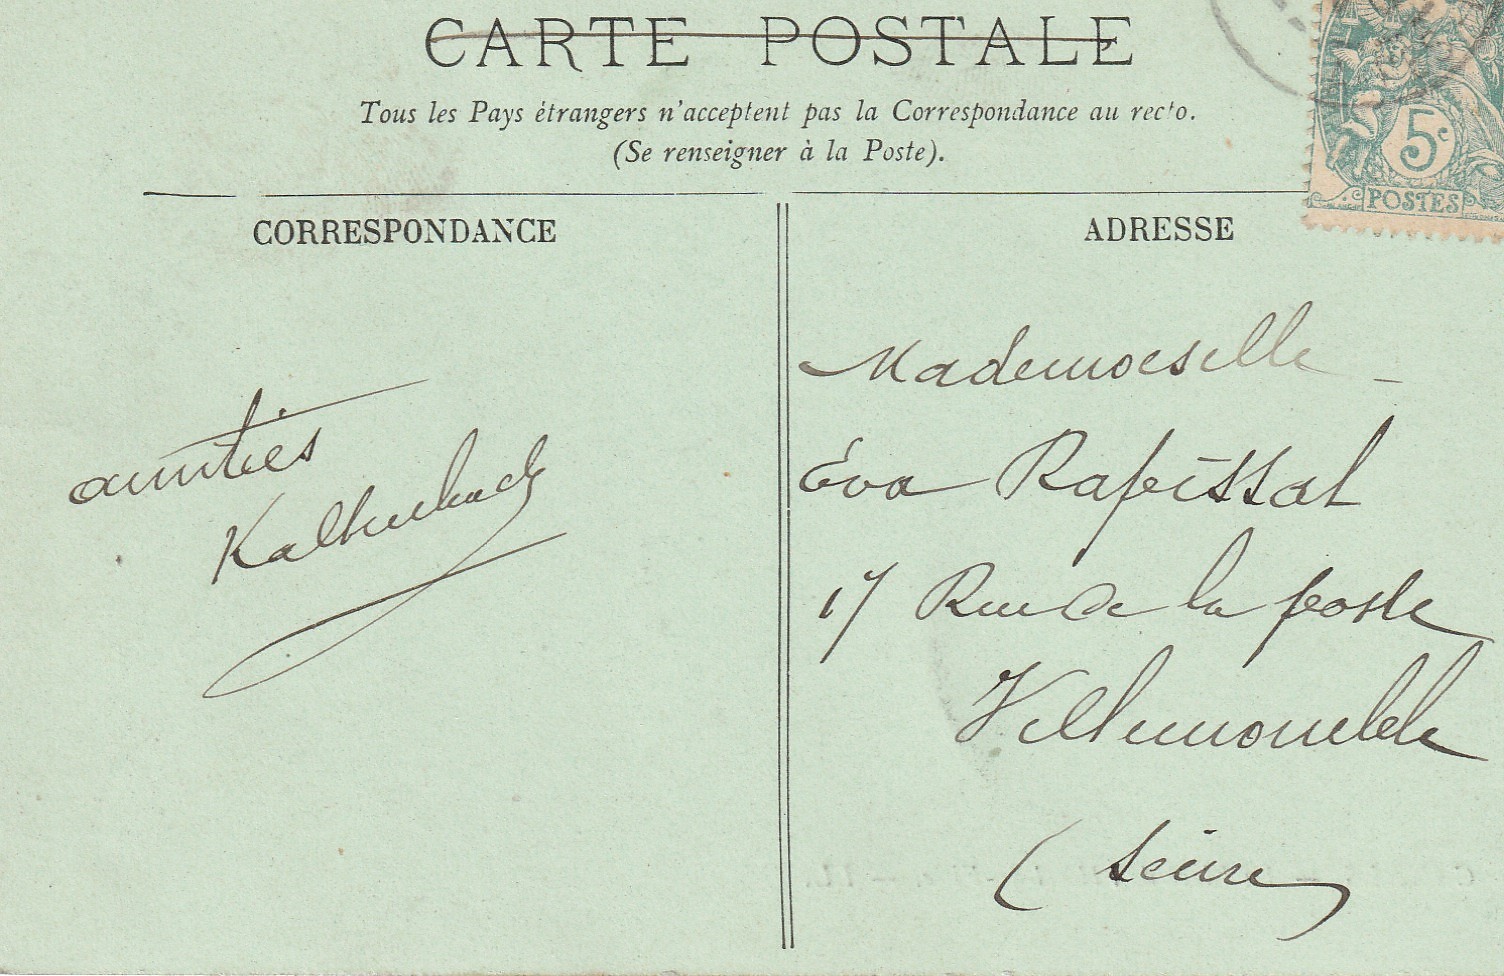 CARTE POSTALE
Tous les Pays étrangers n'acceptent pas la Correspondance au recto.
(Se renseigner à la Poste).
CORRESPONDANCE
ADRESSE
5c
POSTES
amitiés
Mademoiselle
Éva Rapissat
17 Rue de la poste
Villemomble
(Seine)